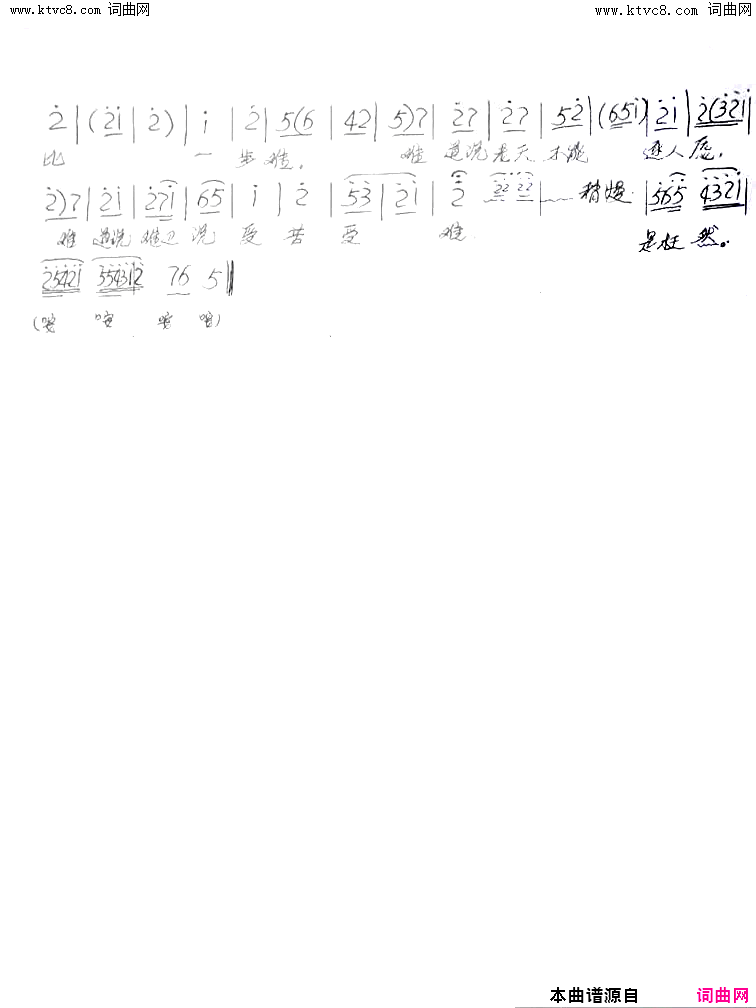 www.ktvc8.com 词曲网 www.ktvc8.com 词曲网
2̇ | (2̇i̇ | 2̇) | i̇ | 2̇ | 5(6 | 42 | 5)7 | 2̇7 | 2̇7 | 52̇ | (65i̇) | 2̇i̇ | 2̇(3̇2̇i̇ |
比 一 步难。 难 道说老天 不能 遂人愿。
2̇)7 | 2̇i̇ | 2̇7i̇ | 65 | i̇ | 2̇ | 5̇3̇ | 2̇i̇ | 2̇ 2̇2̇ 2̇2̇ | 稍慢 | 565 4̇3̇2̇i̇ |
难 道说 说 受 苦 受 难 是枉 然。
2̇5̇4̇2̇i̇ 5̇5̇4̇3̇i̇2̇ 76 5 ‖
本曲谱源自 词曲网